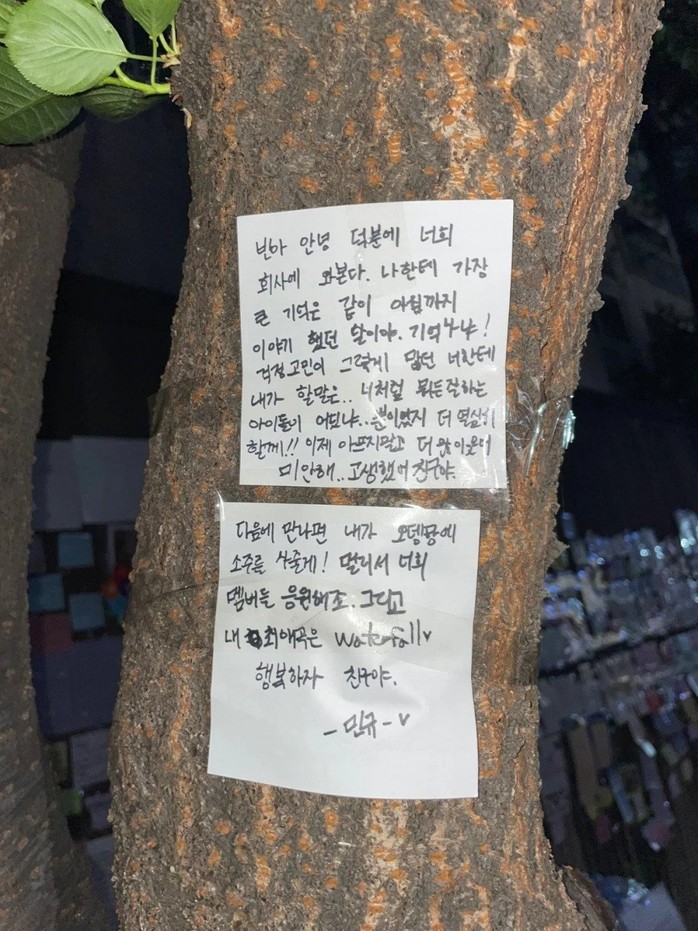 빈아 안녕 덕분에 너희
회사에 와본다. 나한테 가장
큰 기억은 같이 아침까지
이야기 했던 날이야. 기억나냐!
걱정 고민이 그렇게 많던 너한테
내가 할말은.. 너처럼 뭐든 잘하는
아이돌이 어딨냐.. 뿐이였지 더 열심히
할게!! 이제 아프지말고 더 많이
미안해.. 고생했어 친구야.
다음에 만나면 내가 오뎅탕에
소주를 사줄게! 멀리서 너희
멤버들 응원해조. 그리고
내 최애곡은 waterfall♥
행복하자 친구야.
- 민규 - ♥